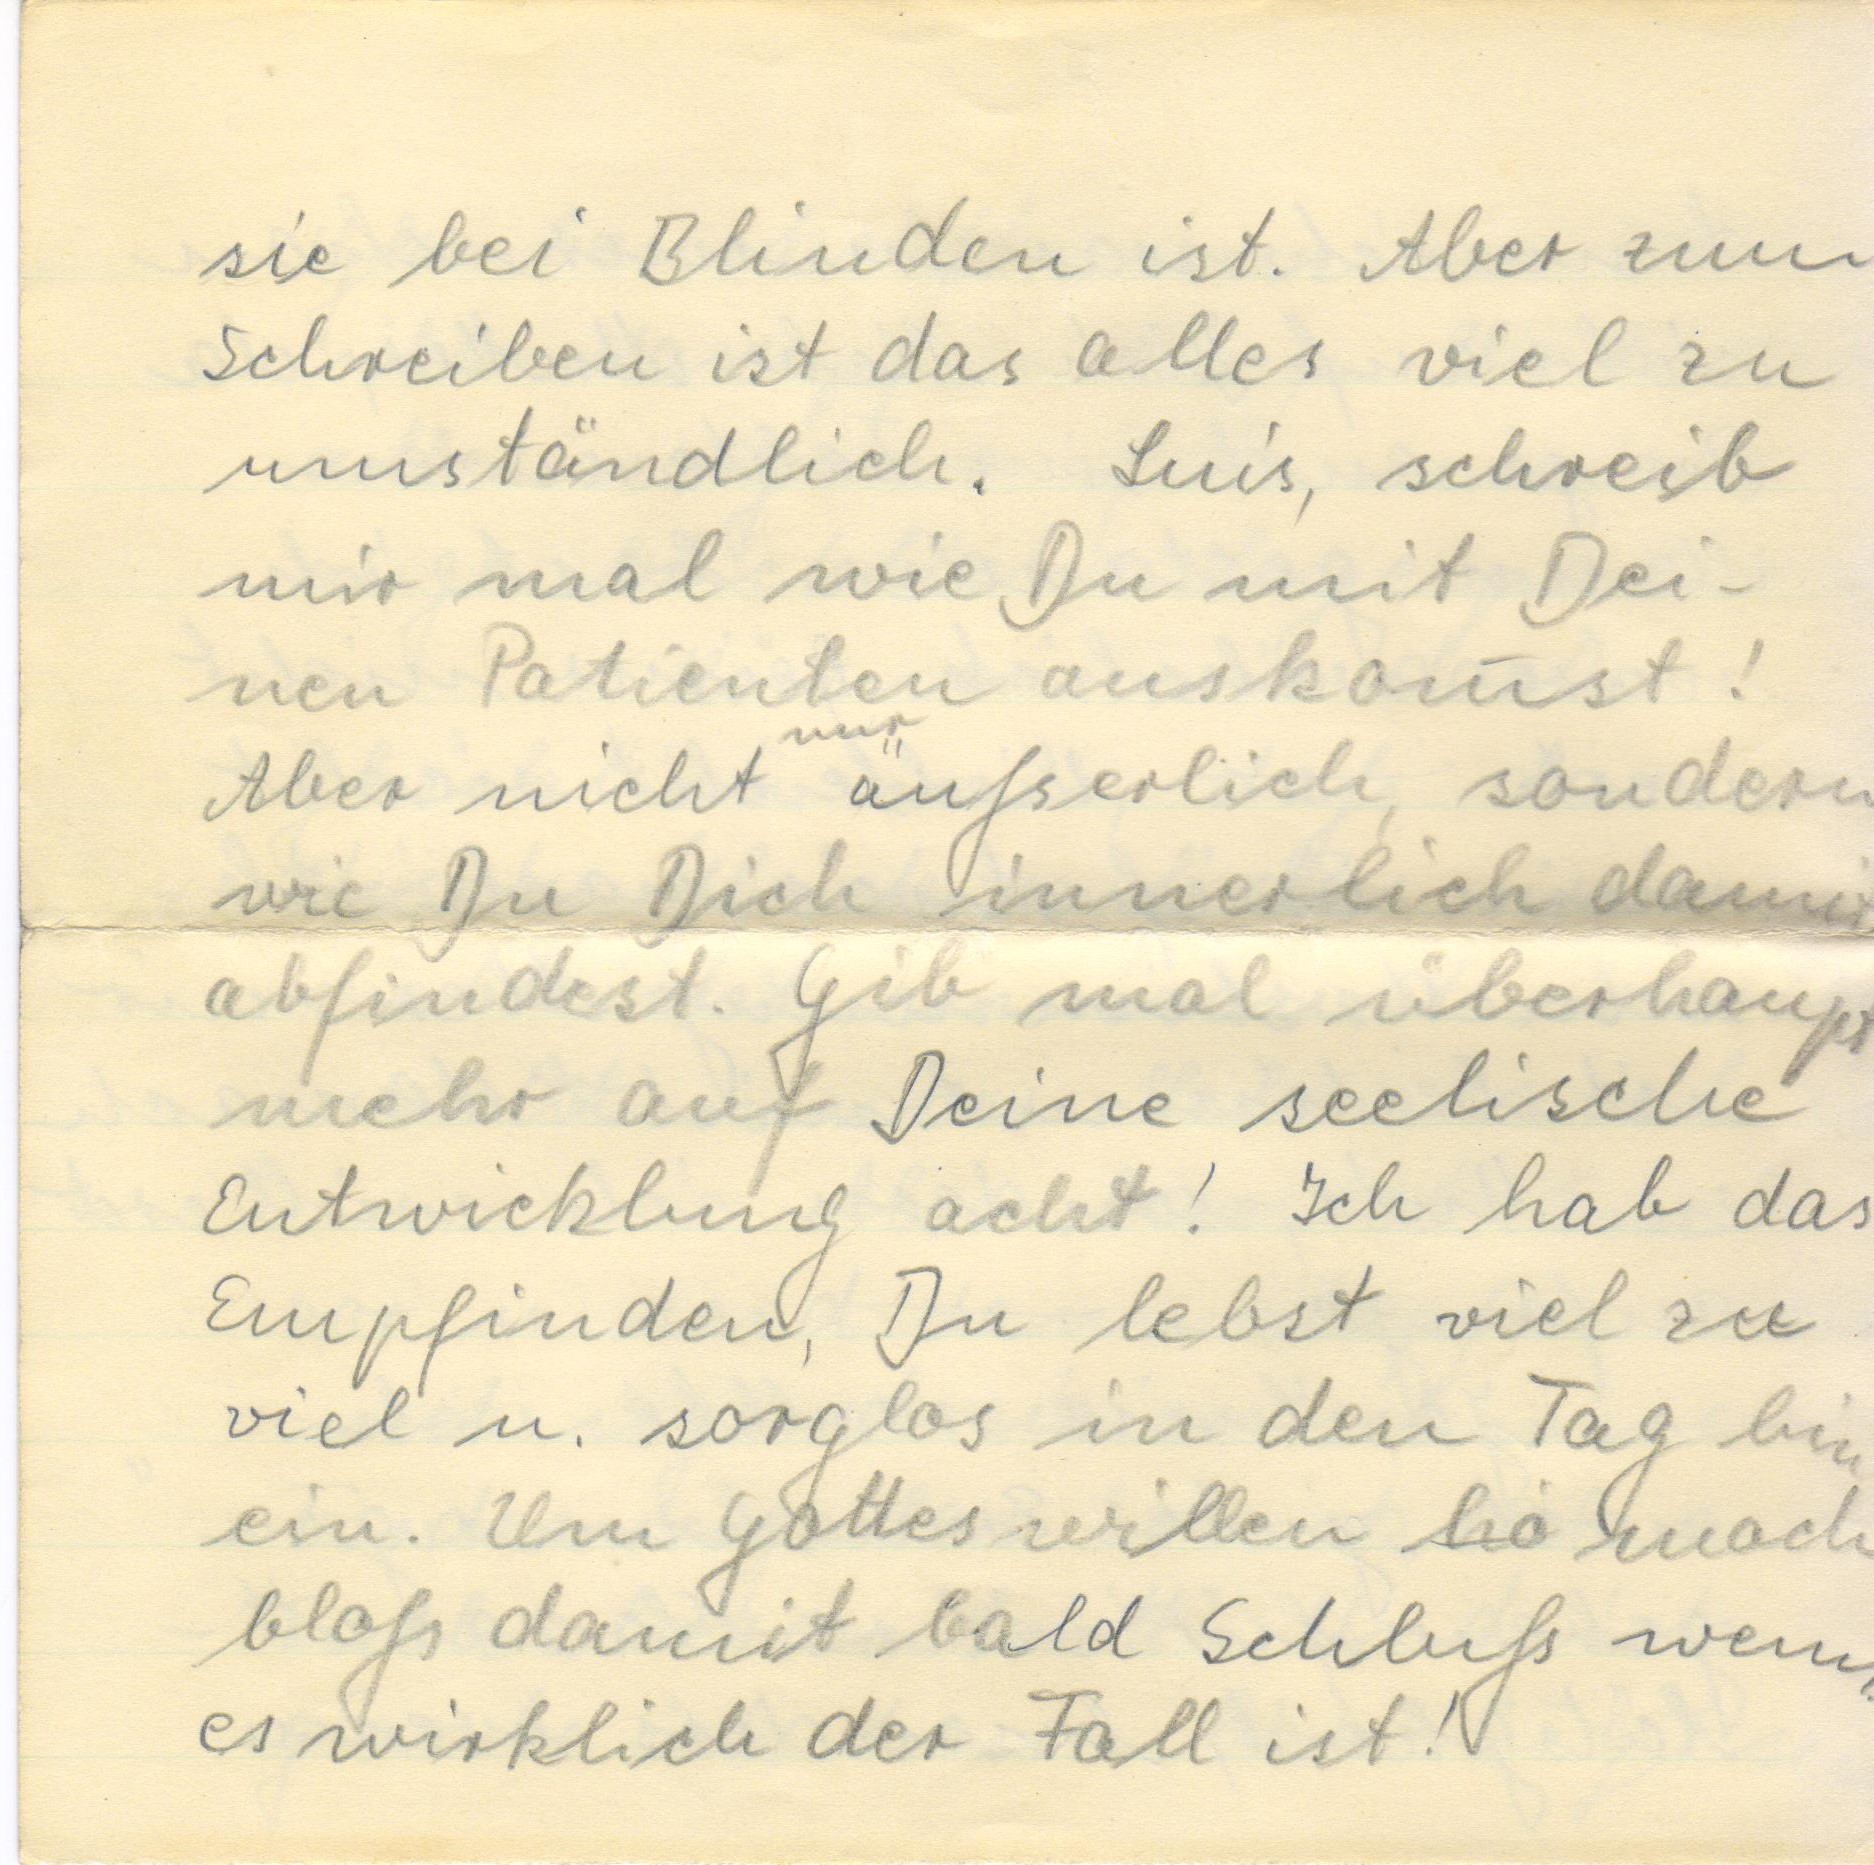 sie bei Blinden ist. Aber zum
Schreiben ist das alles viel zu
umständlich. Luis, schreib
mir mal wie Du mit Dei-
nen Patienten auskom̄st!
Aber nicht nur äußerlich, sondern
wie Du Dich innerlich damit
abfindest. Gib mal überhaupt
mehr auf Deine seelische
Entwicklung acht! Ich hab das
Empfinden, Du lebst viel zu
viel u. sorglos in den Tag hin
ein. Um Gottes willen mach
bloß damit bald Schluß wenn
es wirklich der Fall ist!